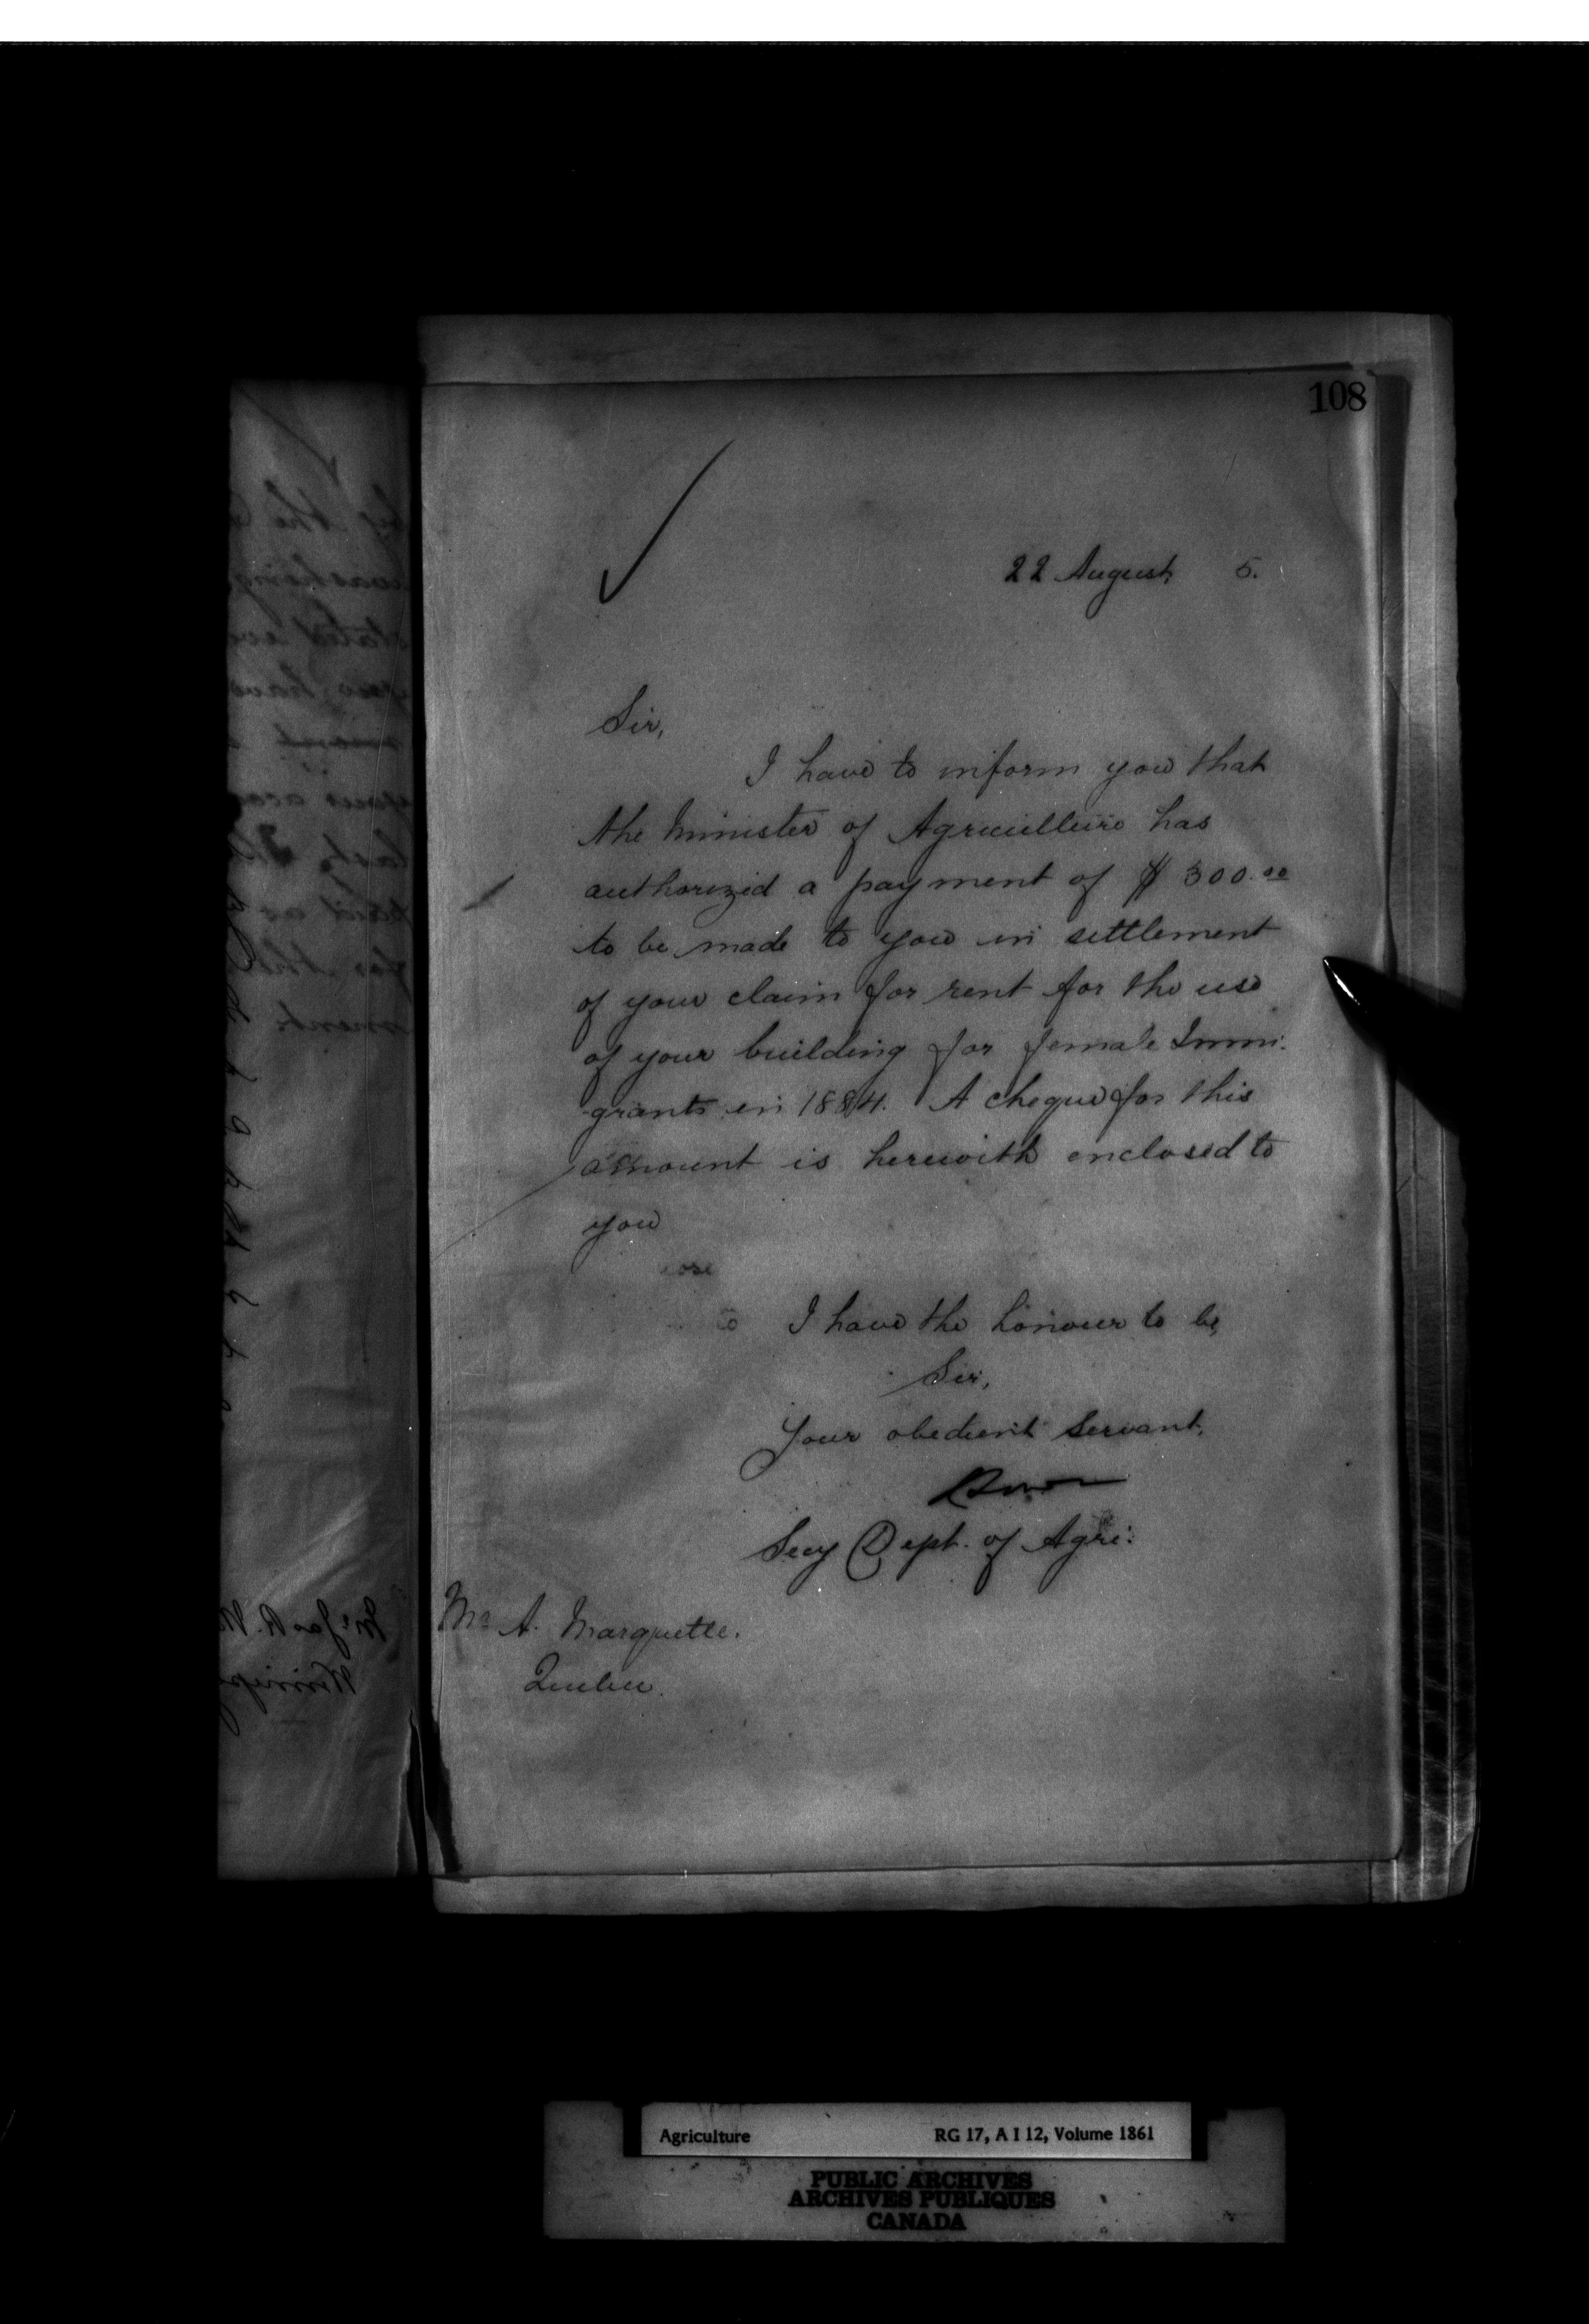 108
22 August 5.
Sir,
I have to inform you that
the Minister of Agriculture has
authorized a payment of $300.00
to be made to you in settlement
of your claim for rent for the use
of your building for female Immi-
grants in 1884. A cheque for this
amount is herewith enclosed to
you
I have the honour to be,
Sir,
Your obedient Servant,
Secy Dept. of Agri:
Mr A. Marquette.
Quebec.
Agriculture RG 17, A I 12, Volume 1861
PUBLIC ARCHIVES
ARCHIVES PUBLIQUES
CANADA